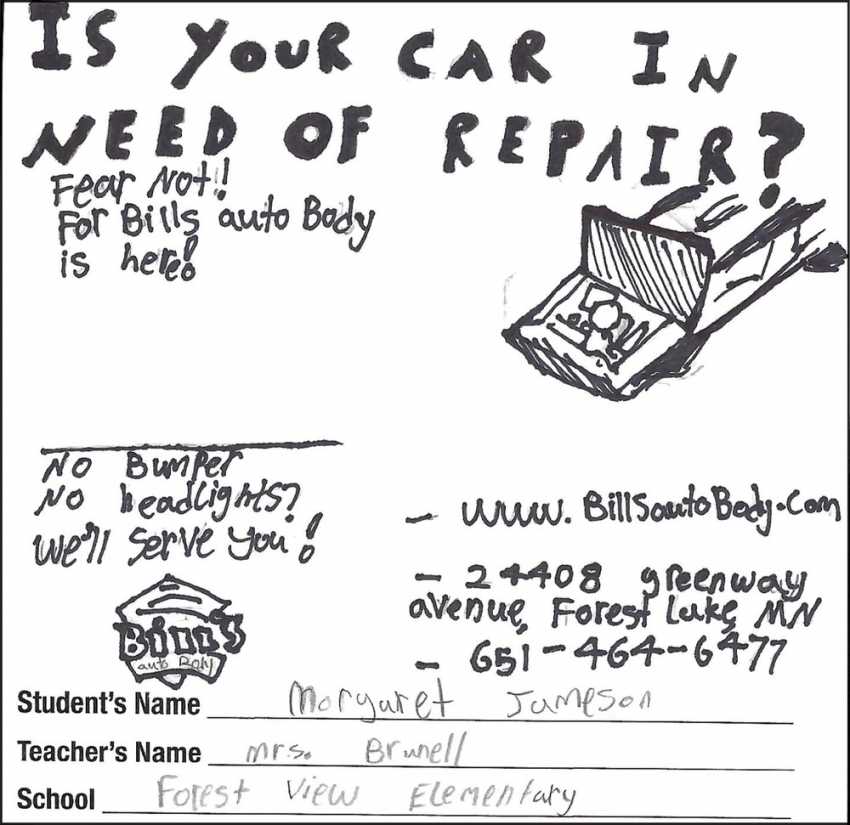 IS YOUR CAR IN
NEED OF REPAIR?
Fear Not!!
For Bills auto Body
is here!
NO Bumper
NO headlights?
we'll serve you!
- www.BillsautoBody.com
- 24408 greenway
avenue, Forest Lake, MN
- 651-464-6477
Bill's
auto Body
Student's Name Margaret Jameson
Teacher's Name mrs. Brunell
School Forest View Elementary